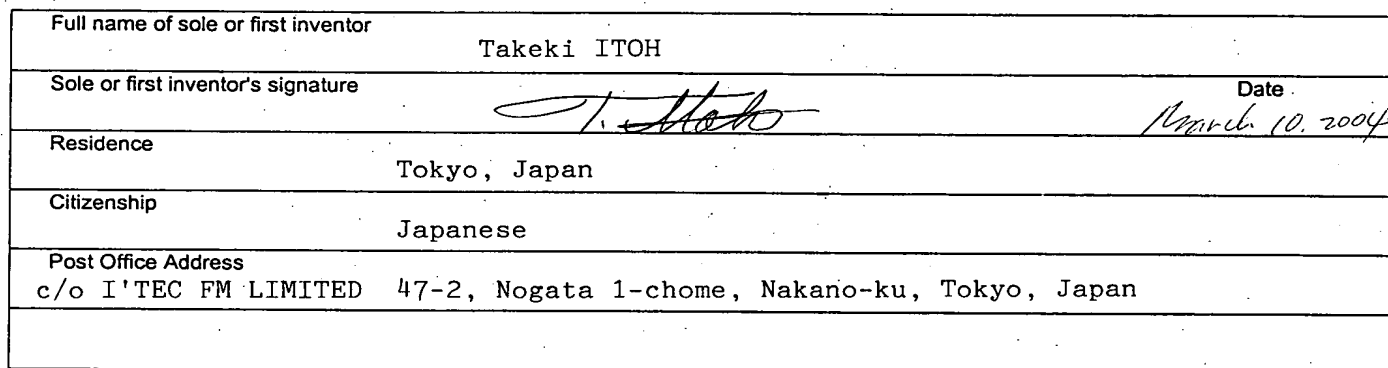 Full name of sole or first inventor
Takeki ITOH
Sole or first inventor's signature
Date
T. Itoh
March 10. 2004
Residence
Tokyo, Japan
Citizenship
Japanese
Post Office Address
c/o I'TEC FM LIMITED 47-2, Nogata 1-chome, Nakano-ku, Tokyo, Japan